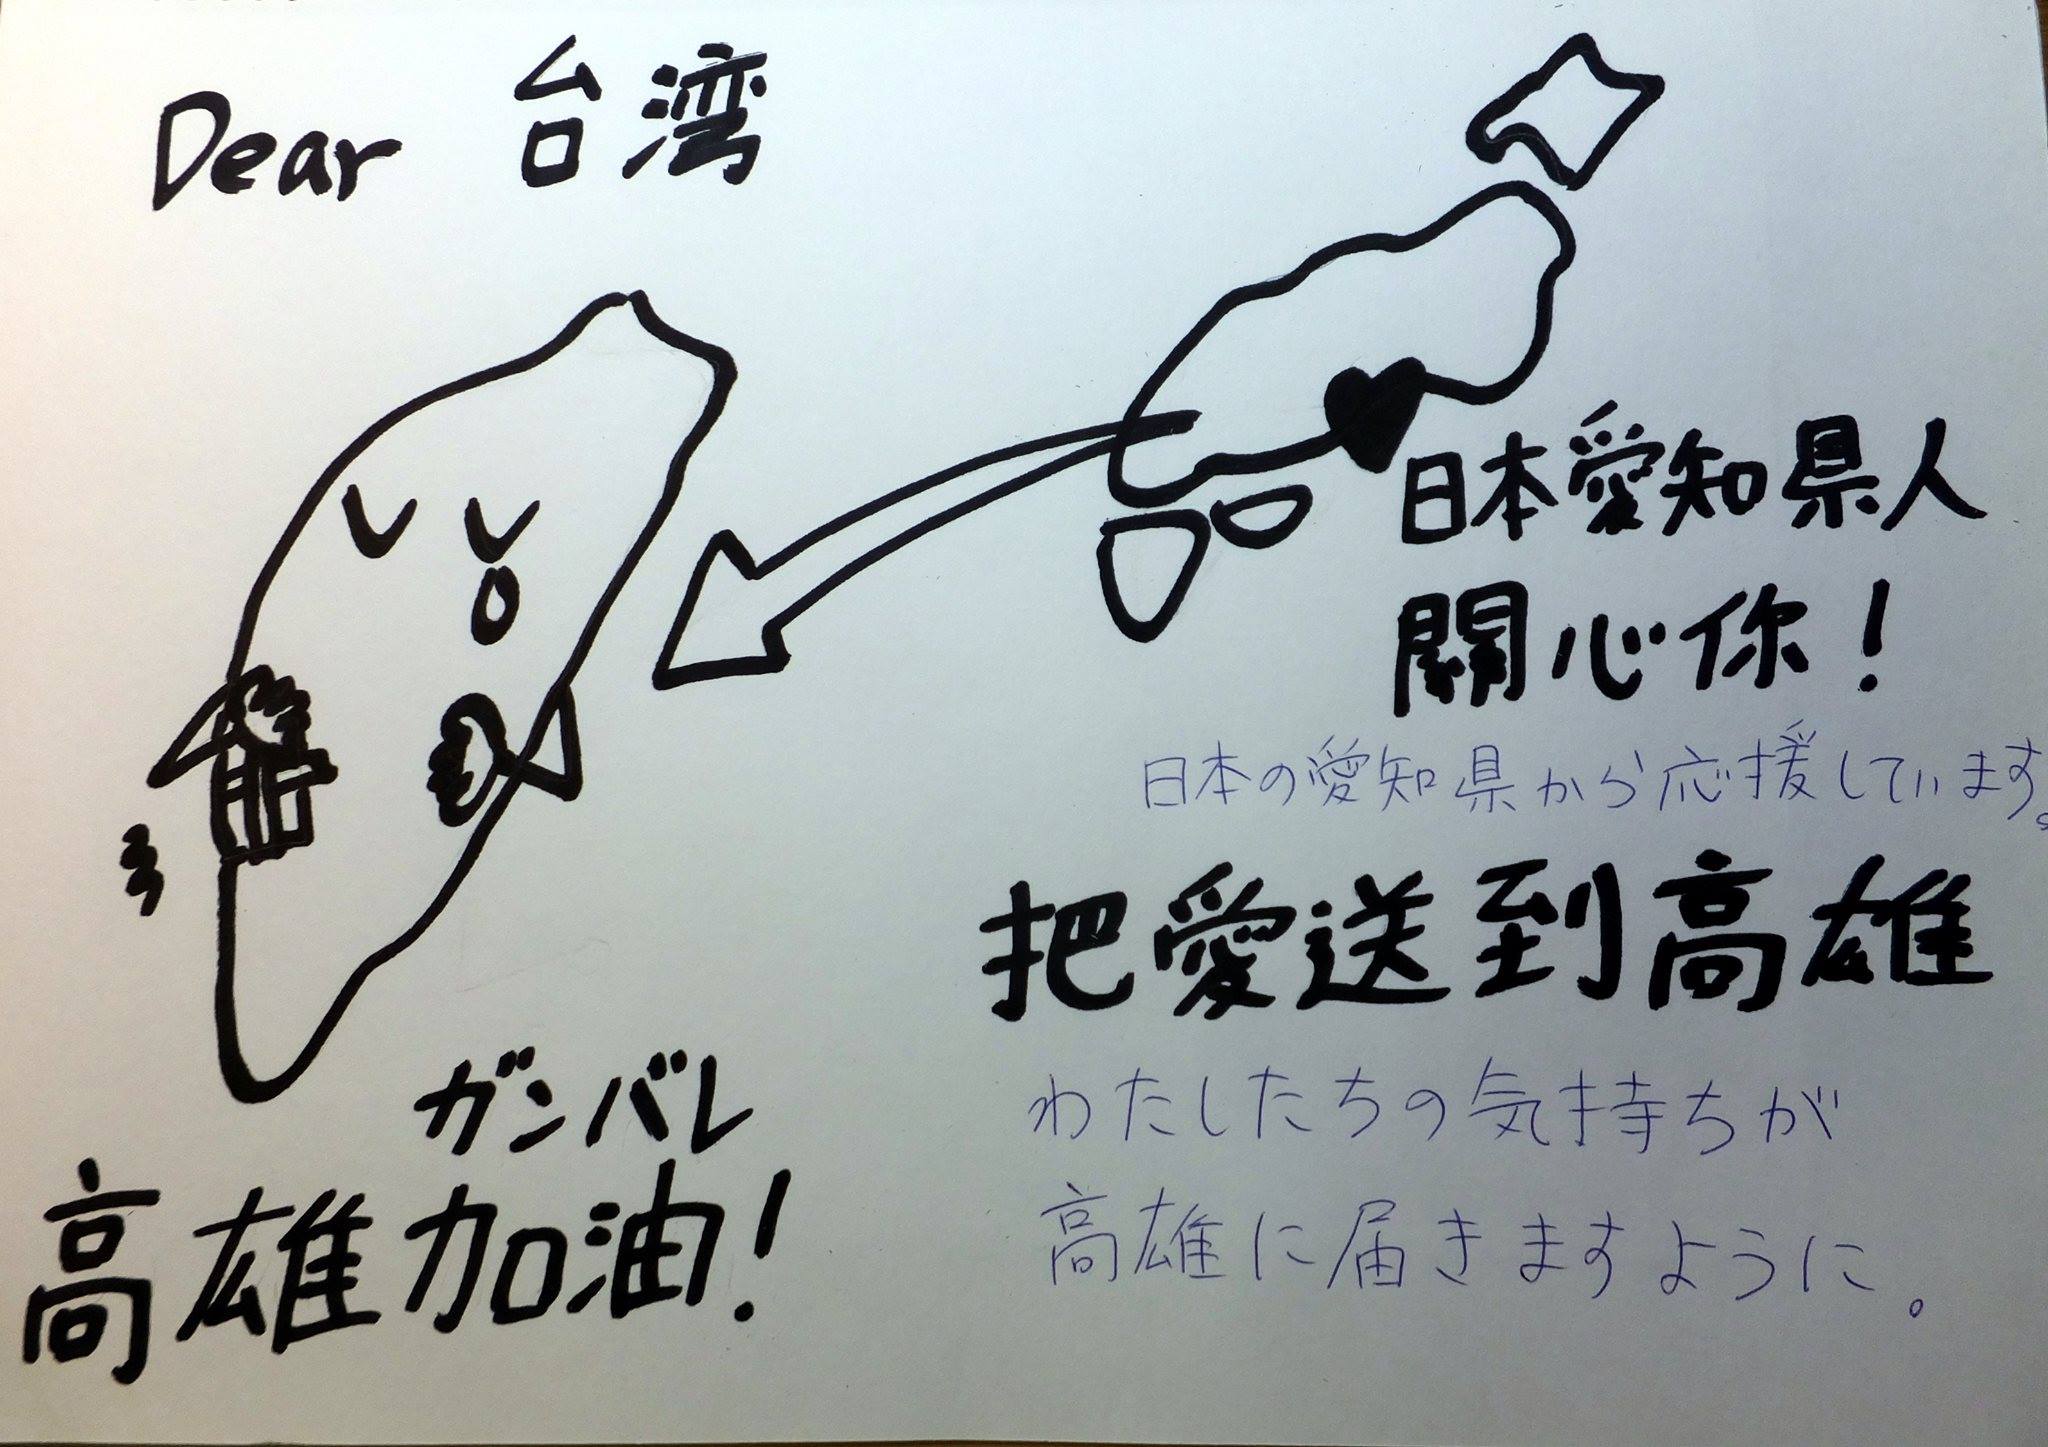 Dear 台湾
日本愛知県人
關心你！
日本の愛知県から応援しています。
把愛送到高雄
わたしたちの気持ちが
高雄に届きますように。
ガンバレ
高雄加油！